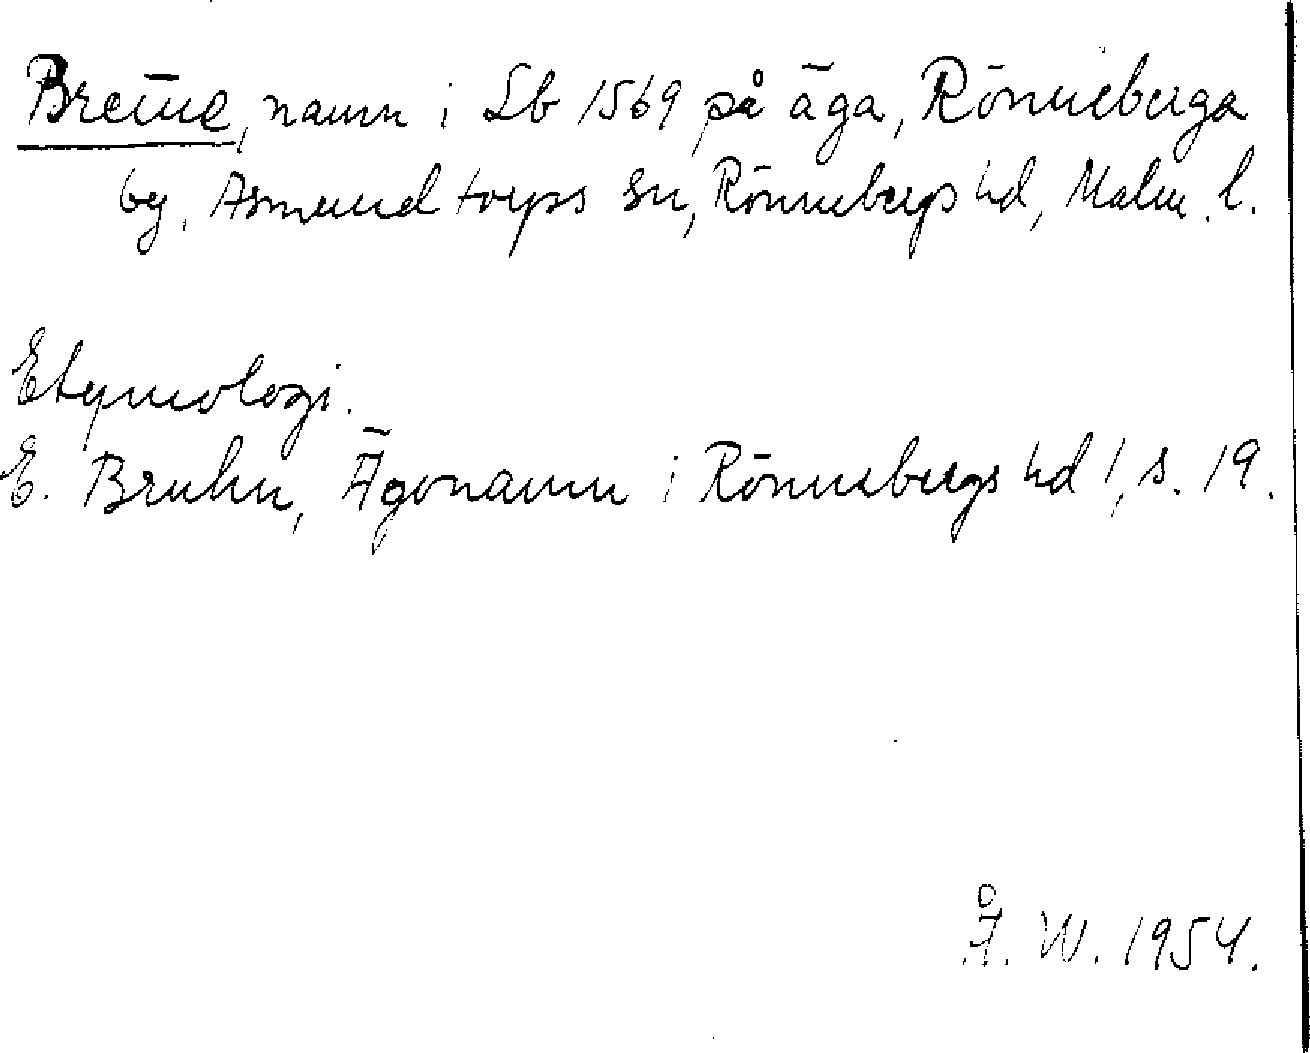 Brem̄e, namn i Lb 1569 på äga, Rönneberga
by, Asmundtorps sn, Rönnebergs hd, Malm. l.
Etymologi.
E. Bruhn, Ägonamn i Rönnebergs hd 1, s. 19.
Å. W. 1954.